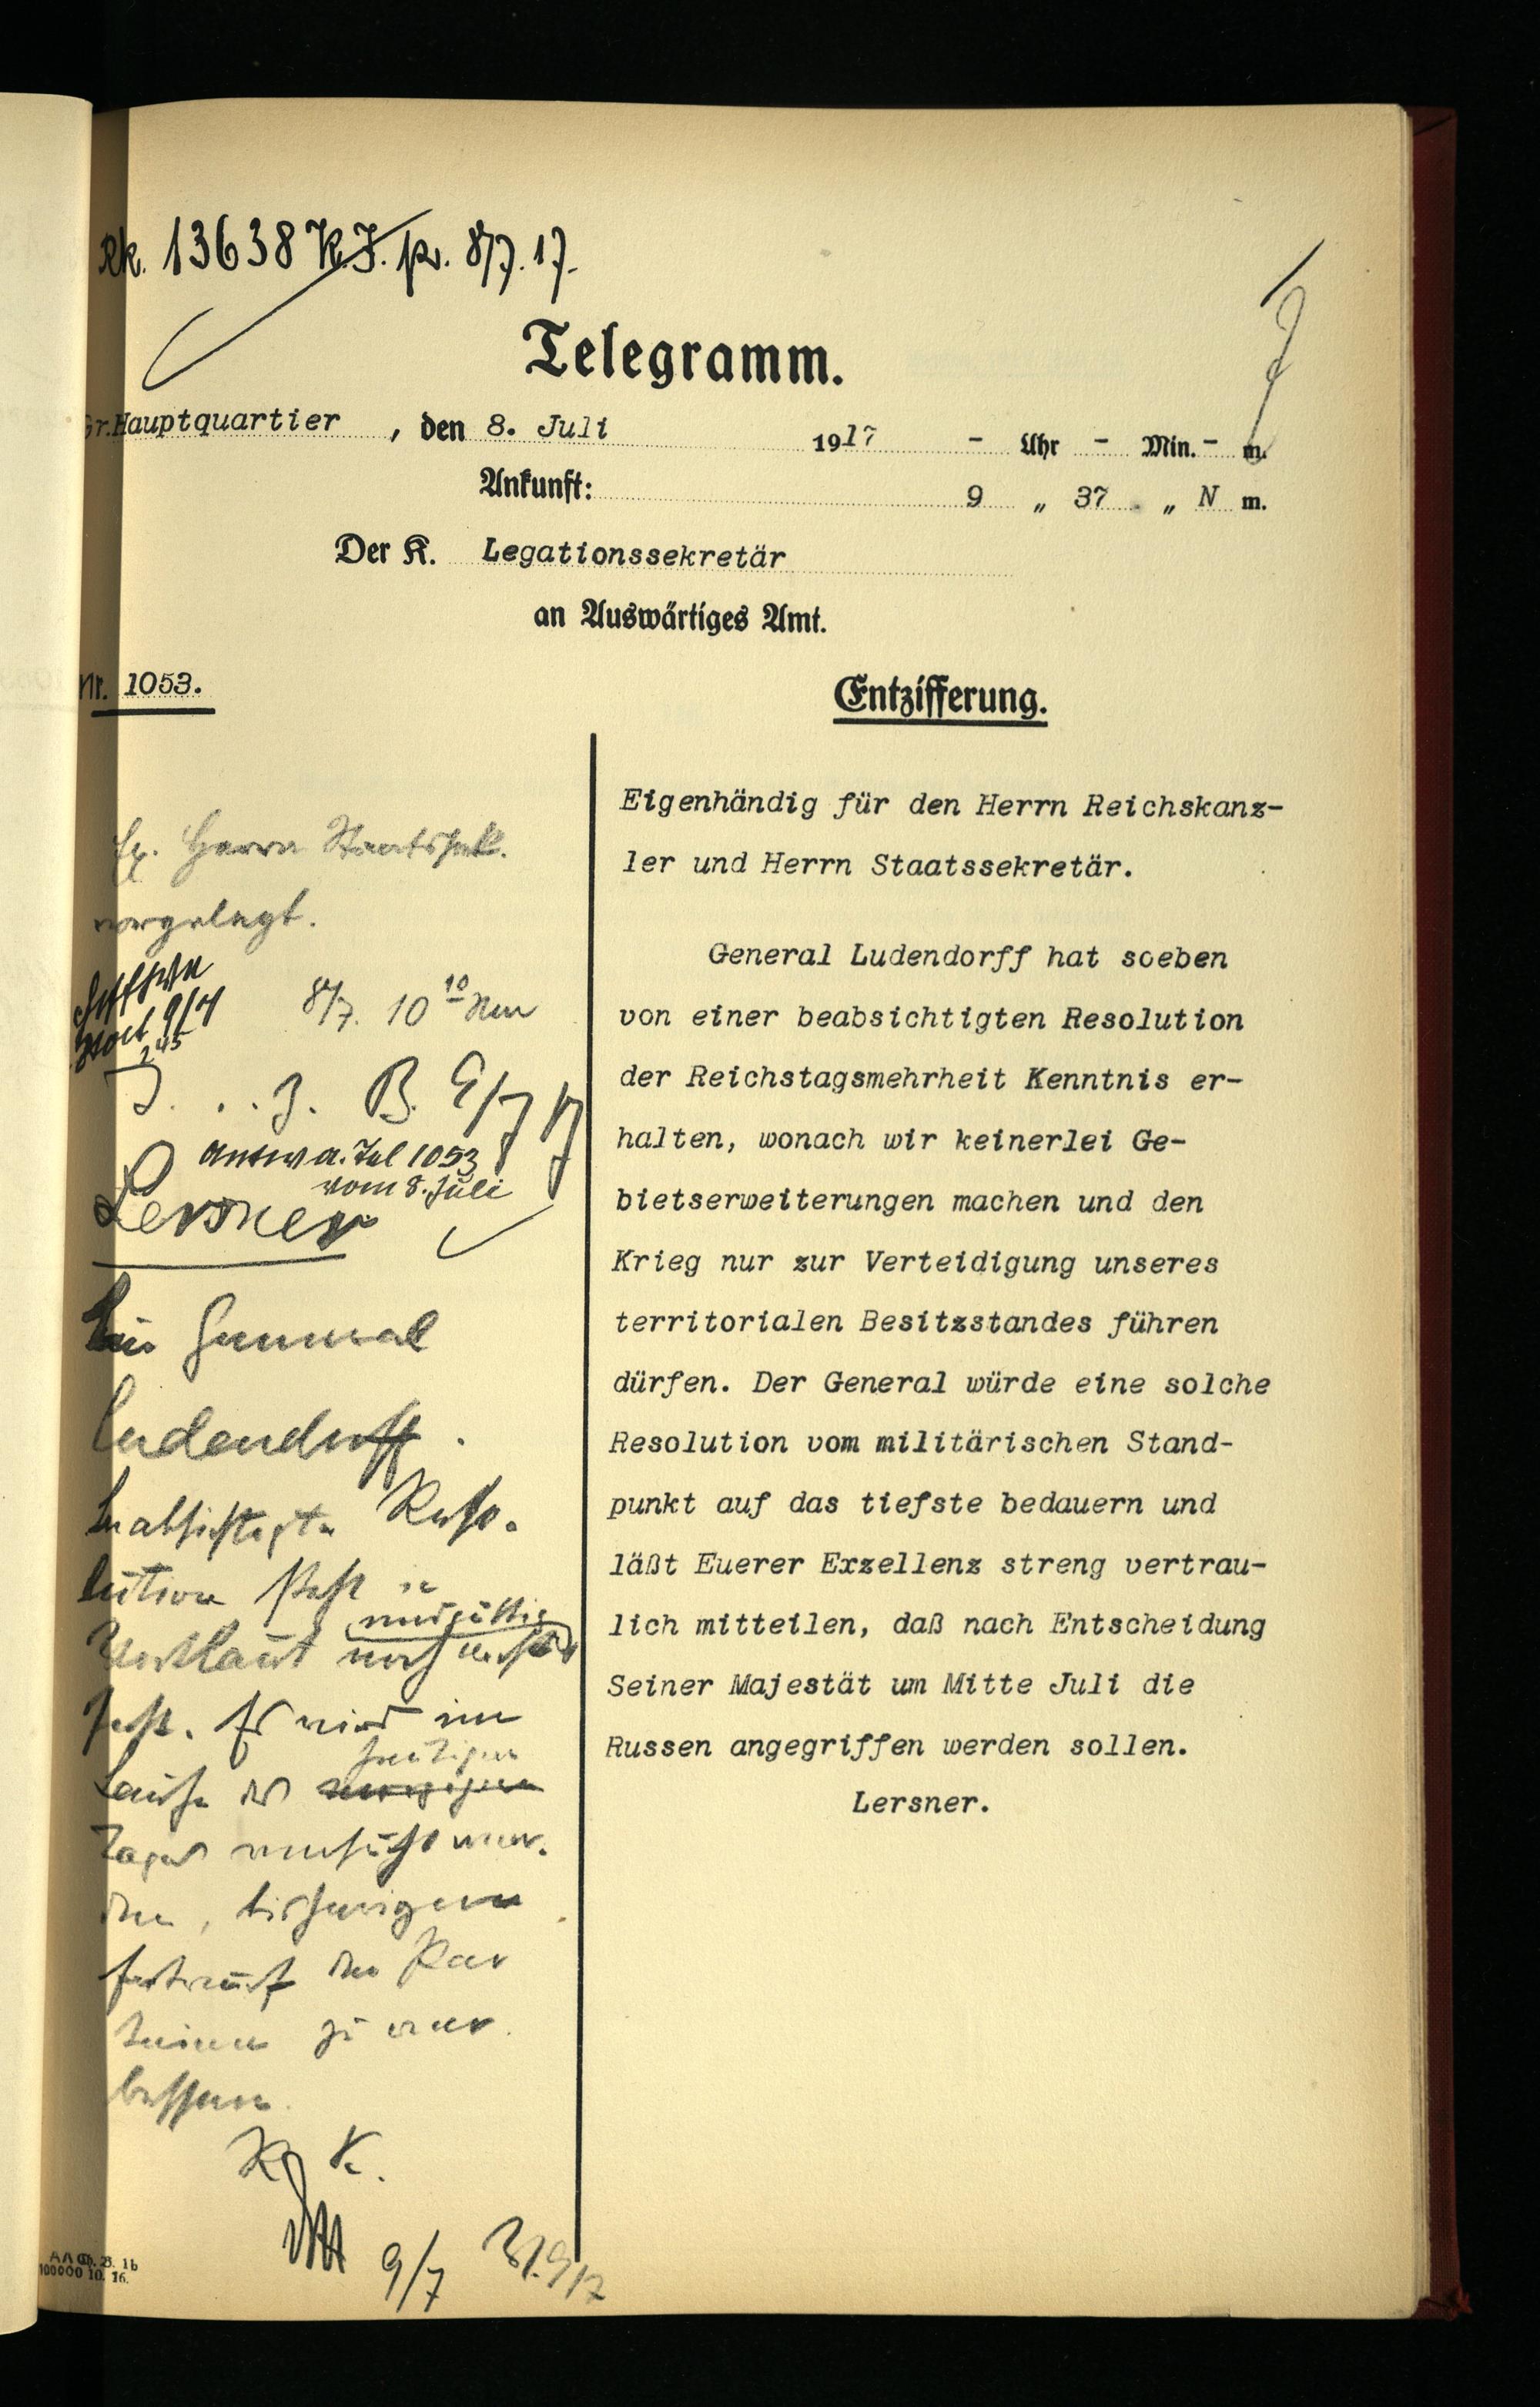 Rk. 13638 K.J. pr. 8/7.17.
Telegramm.
Gr.Hauptquartier, den 8. Juli 1917 - Uhr - Min. - m.
Ankunft: 9 „ 37 „ N m.
Der K. Legationssekretär
an Auswärtiges Amt.
Nr. 1053.
Entzifferung.
Eigenhändig für den Herrn Reichskanz-
ler und Herrn Staatssekretär.
General Ludendorff hat soeben
von einer beabsichtigten Resolution
der Reichstagsmehrheit Kenntnis er-
halten, wonach wir keinerlei Ge-
bietserweiterungen machen und den
Krieg nur zur Verteidigung unseres
territorialen Besitzstandes führen
dürfen. Der General würde eine solche
Resolution vom militärischen Stand-
punkt auf das tiefste bedauern und
läßt Euerer Exzellenz streng vertrau-
lich mitteilen, daß nach Entscheidung
Seiner Majestät um Mitte Juli die
Russen angegriffen werden sollen.
Lersner.
Herrn Staatssekr.
vorgelegt.
8/7. 10 10 Nm
B. 9/7 17
Antw a. Tel 1053
vom 8. Juli
Lersner
General
Ludendorff.
beabsichtigte Reso-
lution steht in
endgültig
Wortlaut noch nicht
fest. Es wird im
heutigen
Laufe des
Tages versucht wer-
den, bisherigen
Entwurf der Par
teien zu ver
bessern.
9/7
AA Gb. B. 1b
100000 10. 16.